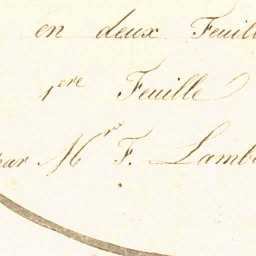 en deux Feuill
1re Feuille
par Mrs F. Lamb